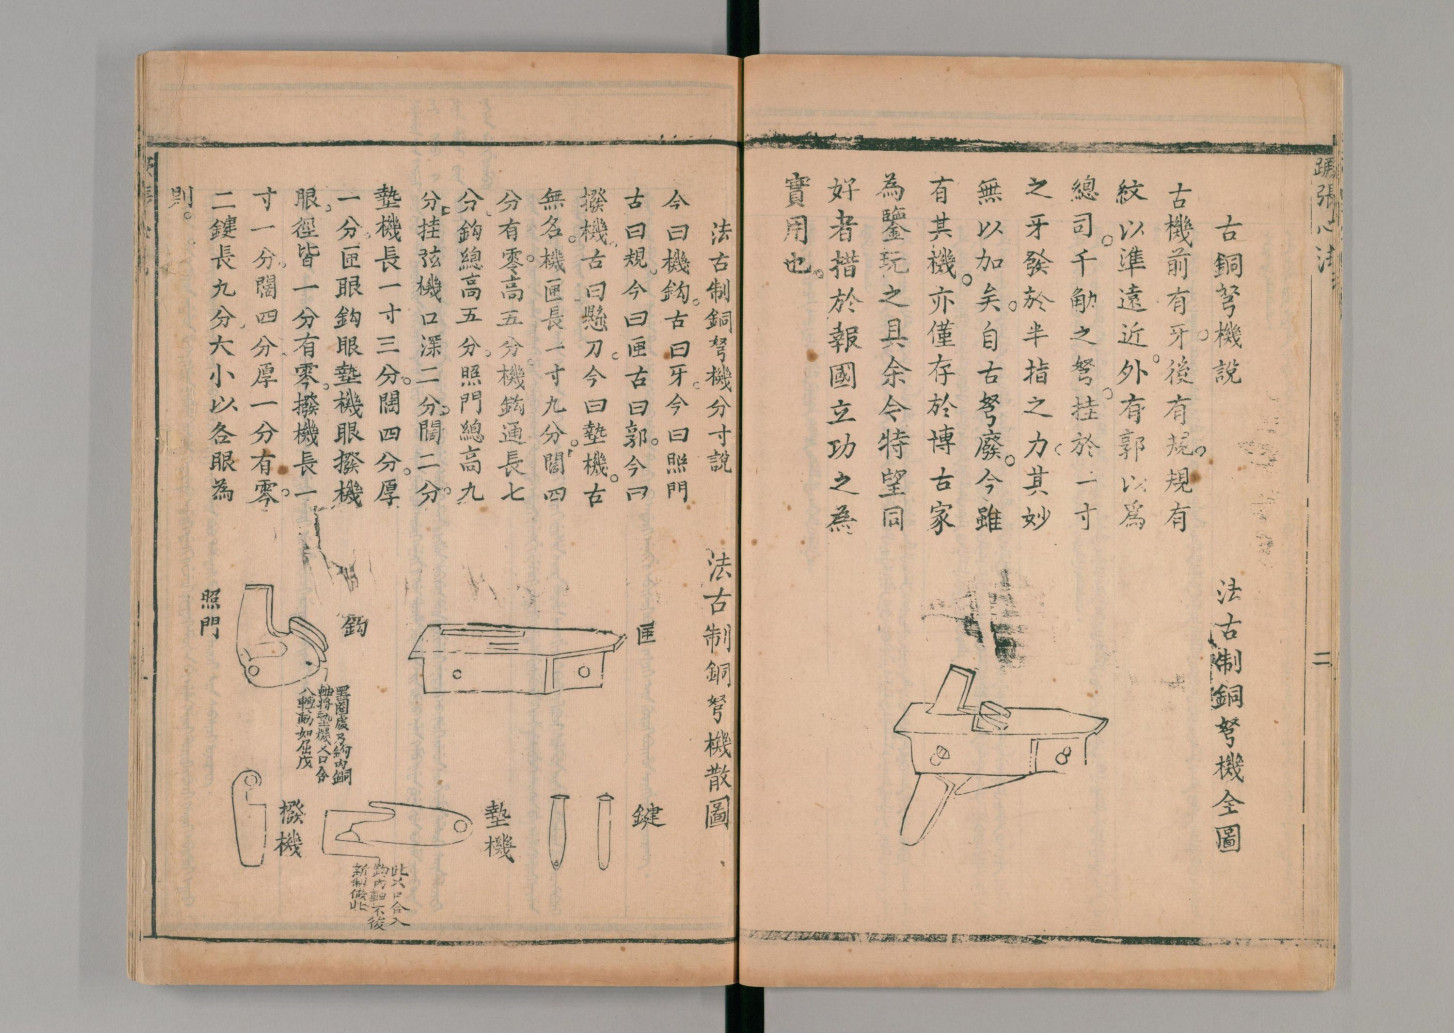 蹶張心法
二
古銅弩機說
古機前有牙後有規規有
紋以準遠近外有郭以為
總司千觔之弩挂於一寸
之牙發於半指之力其妙
無以加矣自古弩廢今雖
有其機亦僅存於博古家
為鑒玩之具余今特望同
好者措於報國立功之為
寶用也
法古制銅弩機全圖
法古制銅弩機分寸說
今曰機鈎古曰牙今曰照門
古曰規今曰匣古曰郭今曰
撥機古曰懸刀今曰墊機古
無名機匣長一寸九分闊四
分有零高五分機鈎通長七
分鈎總高五分照門總高九
分挂弦機口深二分闊二分
墊機長一寸三分闊四分厚
一分匣眼鈎眼墊機眼撥機
眼徑皆一分有零撥機長一
寸一分闊四分厚一分有零
二鍵長九分大小以各眼為
則
法古制銅弩機散圖
匣
鈎
照門
黑圈處乃鈎內銅
軸將墊機乂口合
入轉動如屈戌
鍵
墊機
此乂口合入
鈎內軸不後
新制倣此
撥機